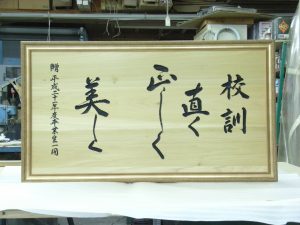 校訓
直く
正しく
美しく
贈 平成二十一年度卒業生一同